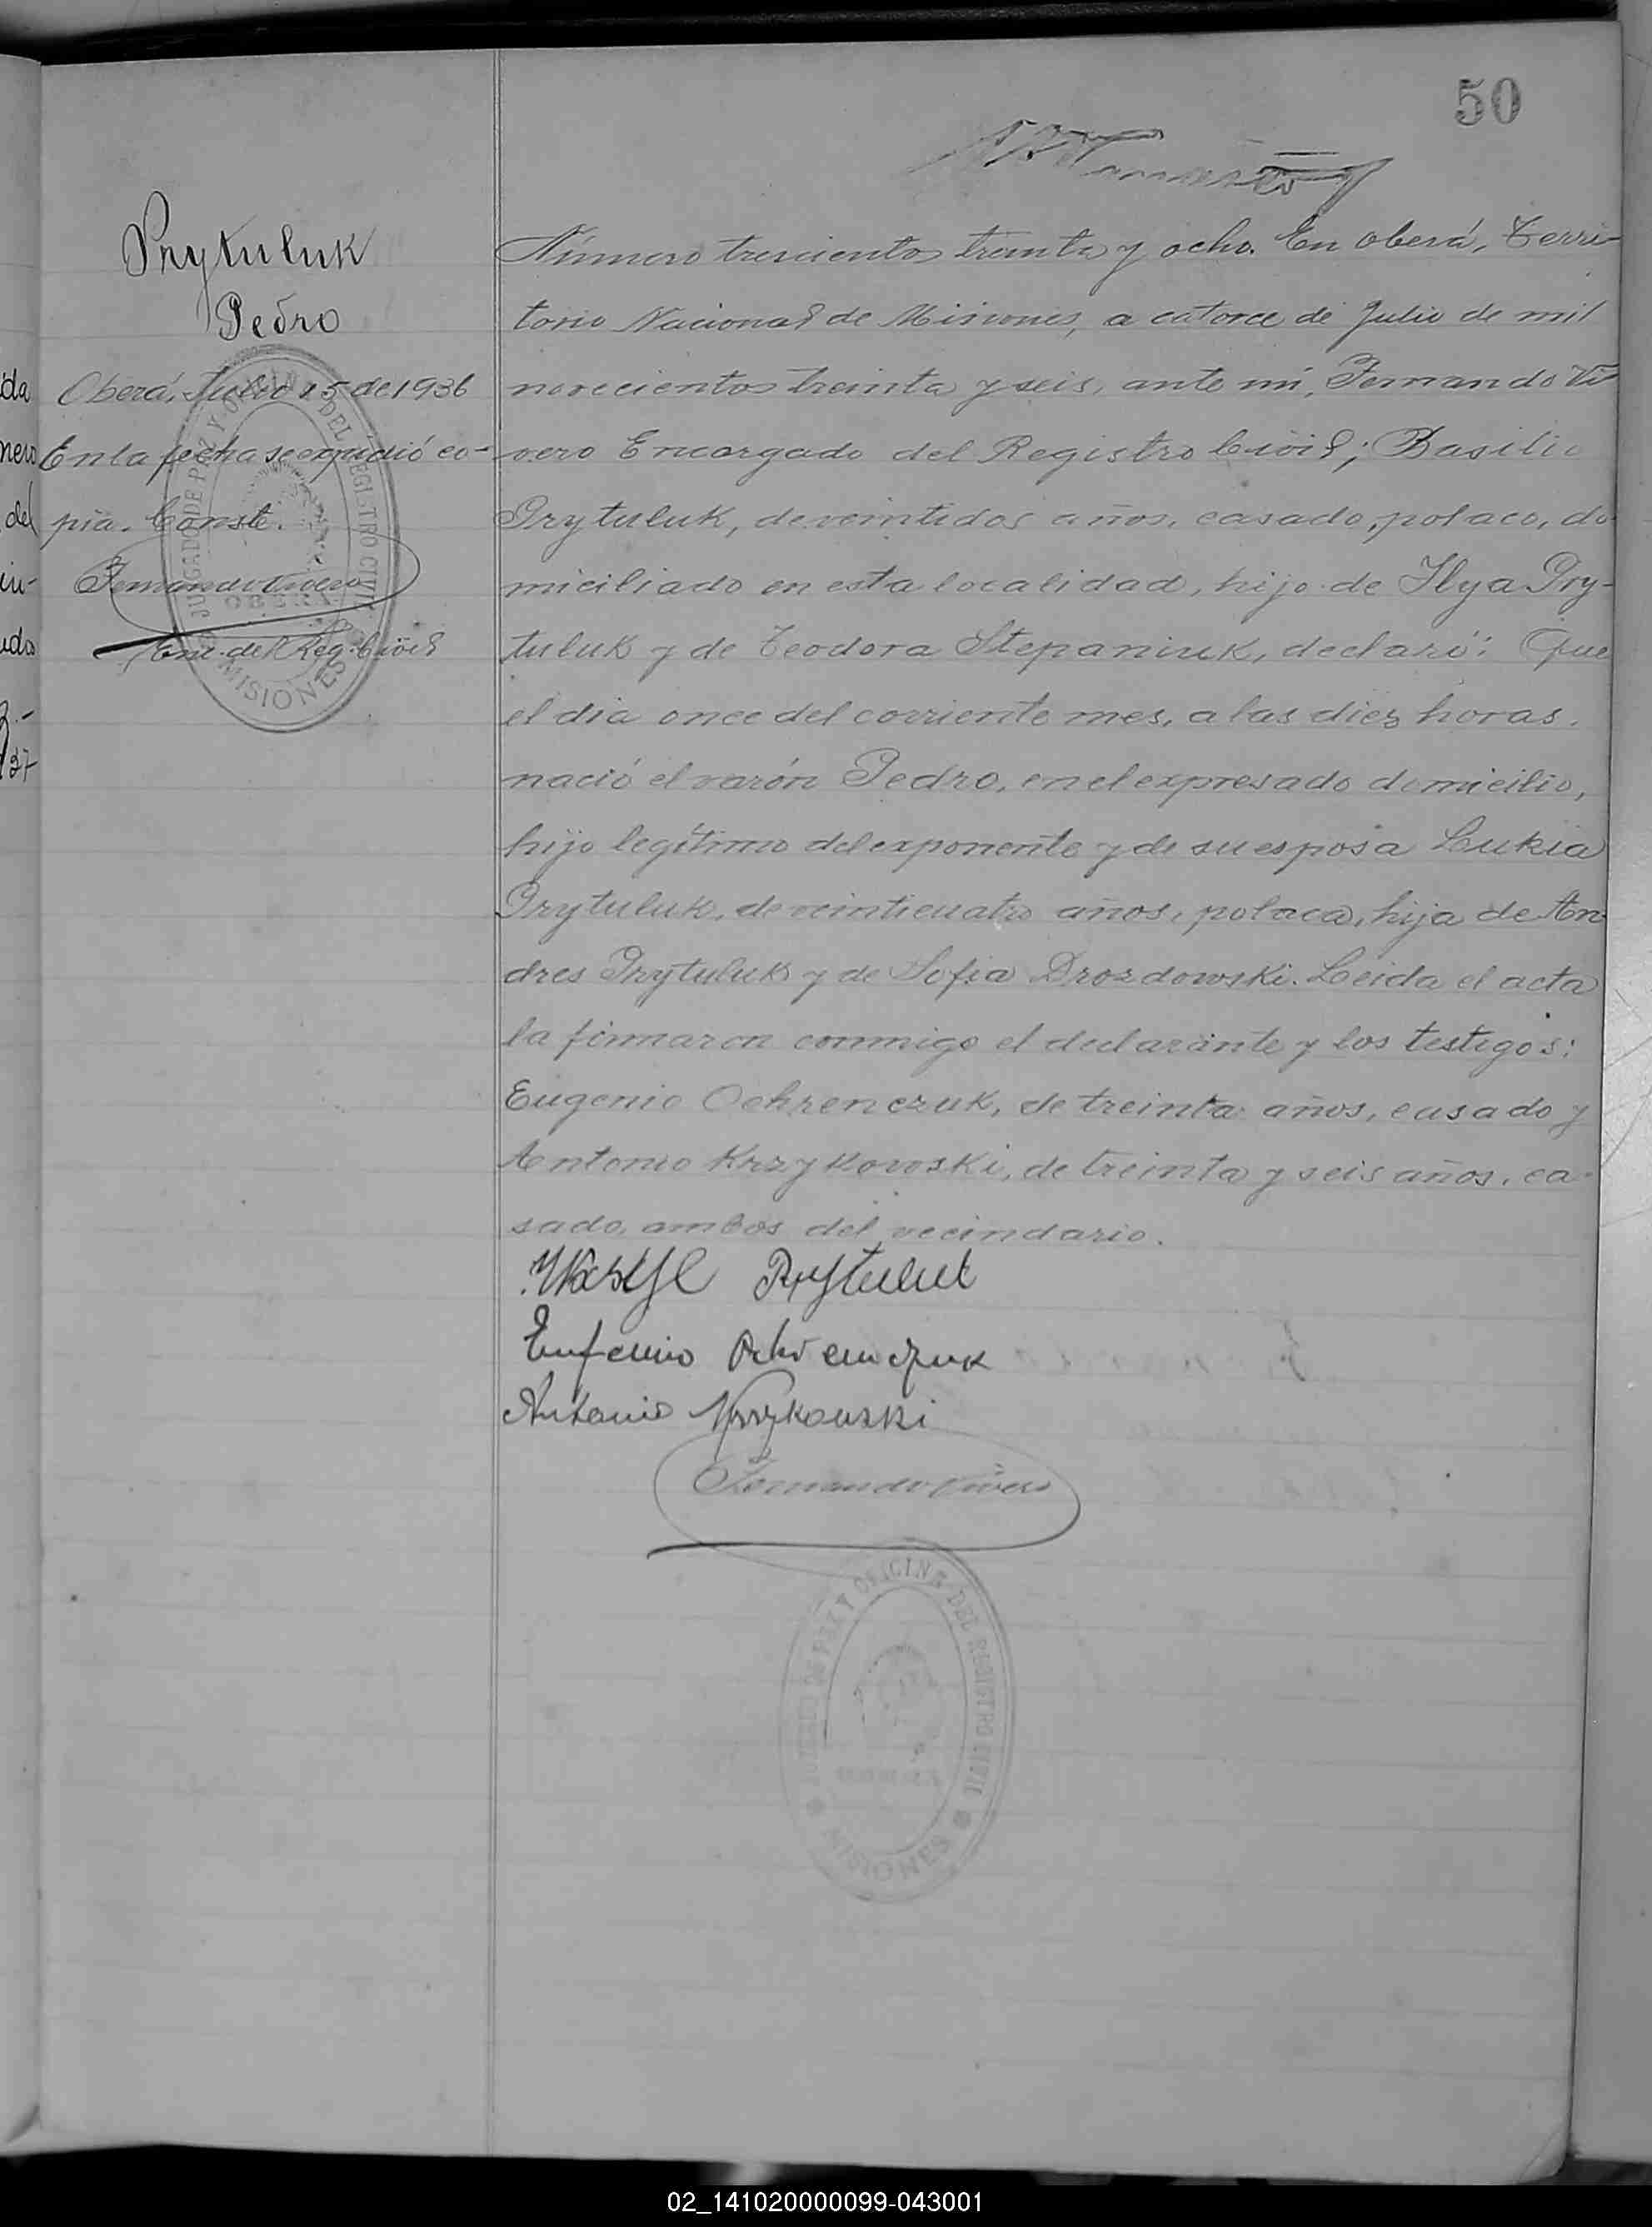 50
Prytuluk
Pedro
Oberá, Julio 15 de 1936
En la fecha se expidió co-
pia. Conste.
Fernando Vivero
Enc. del Reg. Civil
JUZGADO DE PAZ Y OFICINA DEL REGISTRO CIVIL
OBERÁ
MISIONES
Número trescientos treinta y ocho. En Oberá, Terri-
torio Nacional de Misiones, a catorce de Julio de mil
novecientos treinta y seis, ante mí, Fernando Vi-
vero Encargado del Registro Civil; Basilio
Prytuluk, de veintidos años, casado, polaco, do-
miciliado en esta localidad, hijo de Ilya Pry-
tuluk y de Teodora Stepaniuk, declaró: Que
el dia once del corriente mes, a las diez horas,
nació el varón Pedro, en el expresado domicilio,
hijo legítimo del exponente y de su esposa Lukia
Prytuluk, de veinticuatro años, polaca, hija de An-
dres Prytuluk y de Sofia Drozdowski. Leida el acta
la firmaron conmigo el declarante y los testigos:
Eugenio Ochrenczuk, de treinta años, casado y
Antonio Krzykowski, de treinta y seis años, ca-
sado, ambos del vecindario.
Wasyl Prytuluk
Eugenio Ochremczuk
Antonio Krzykowski
Fernando Vivero
JUZGADO DE PAZ Y OFICINA DEL REGISTRO CIVIL
MISIONES
da
nero
del
in-
udo
27
02_141020000099-043001